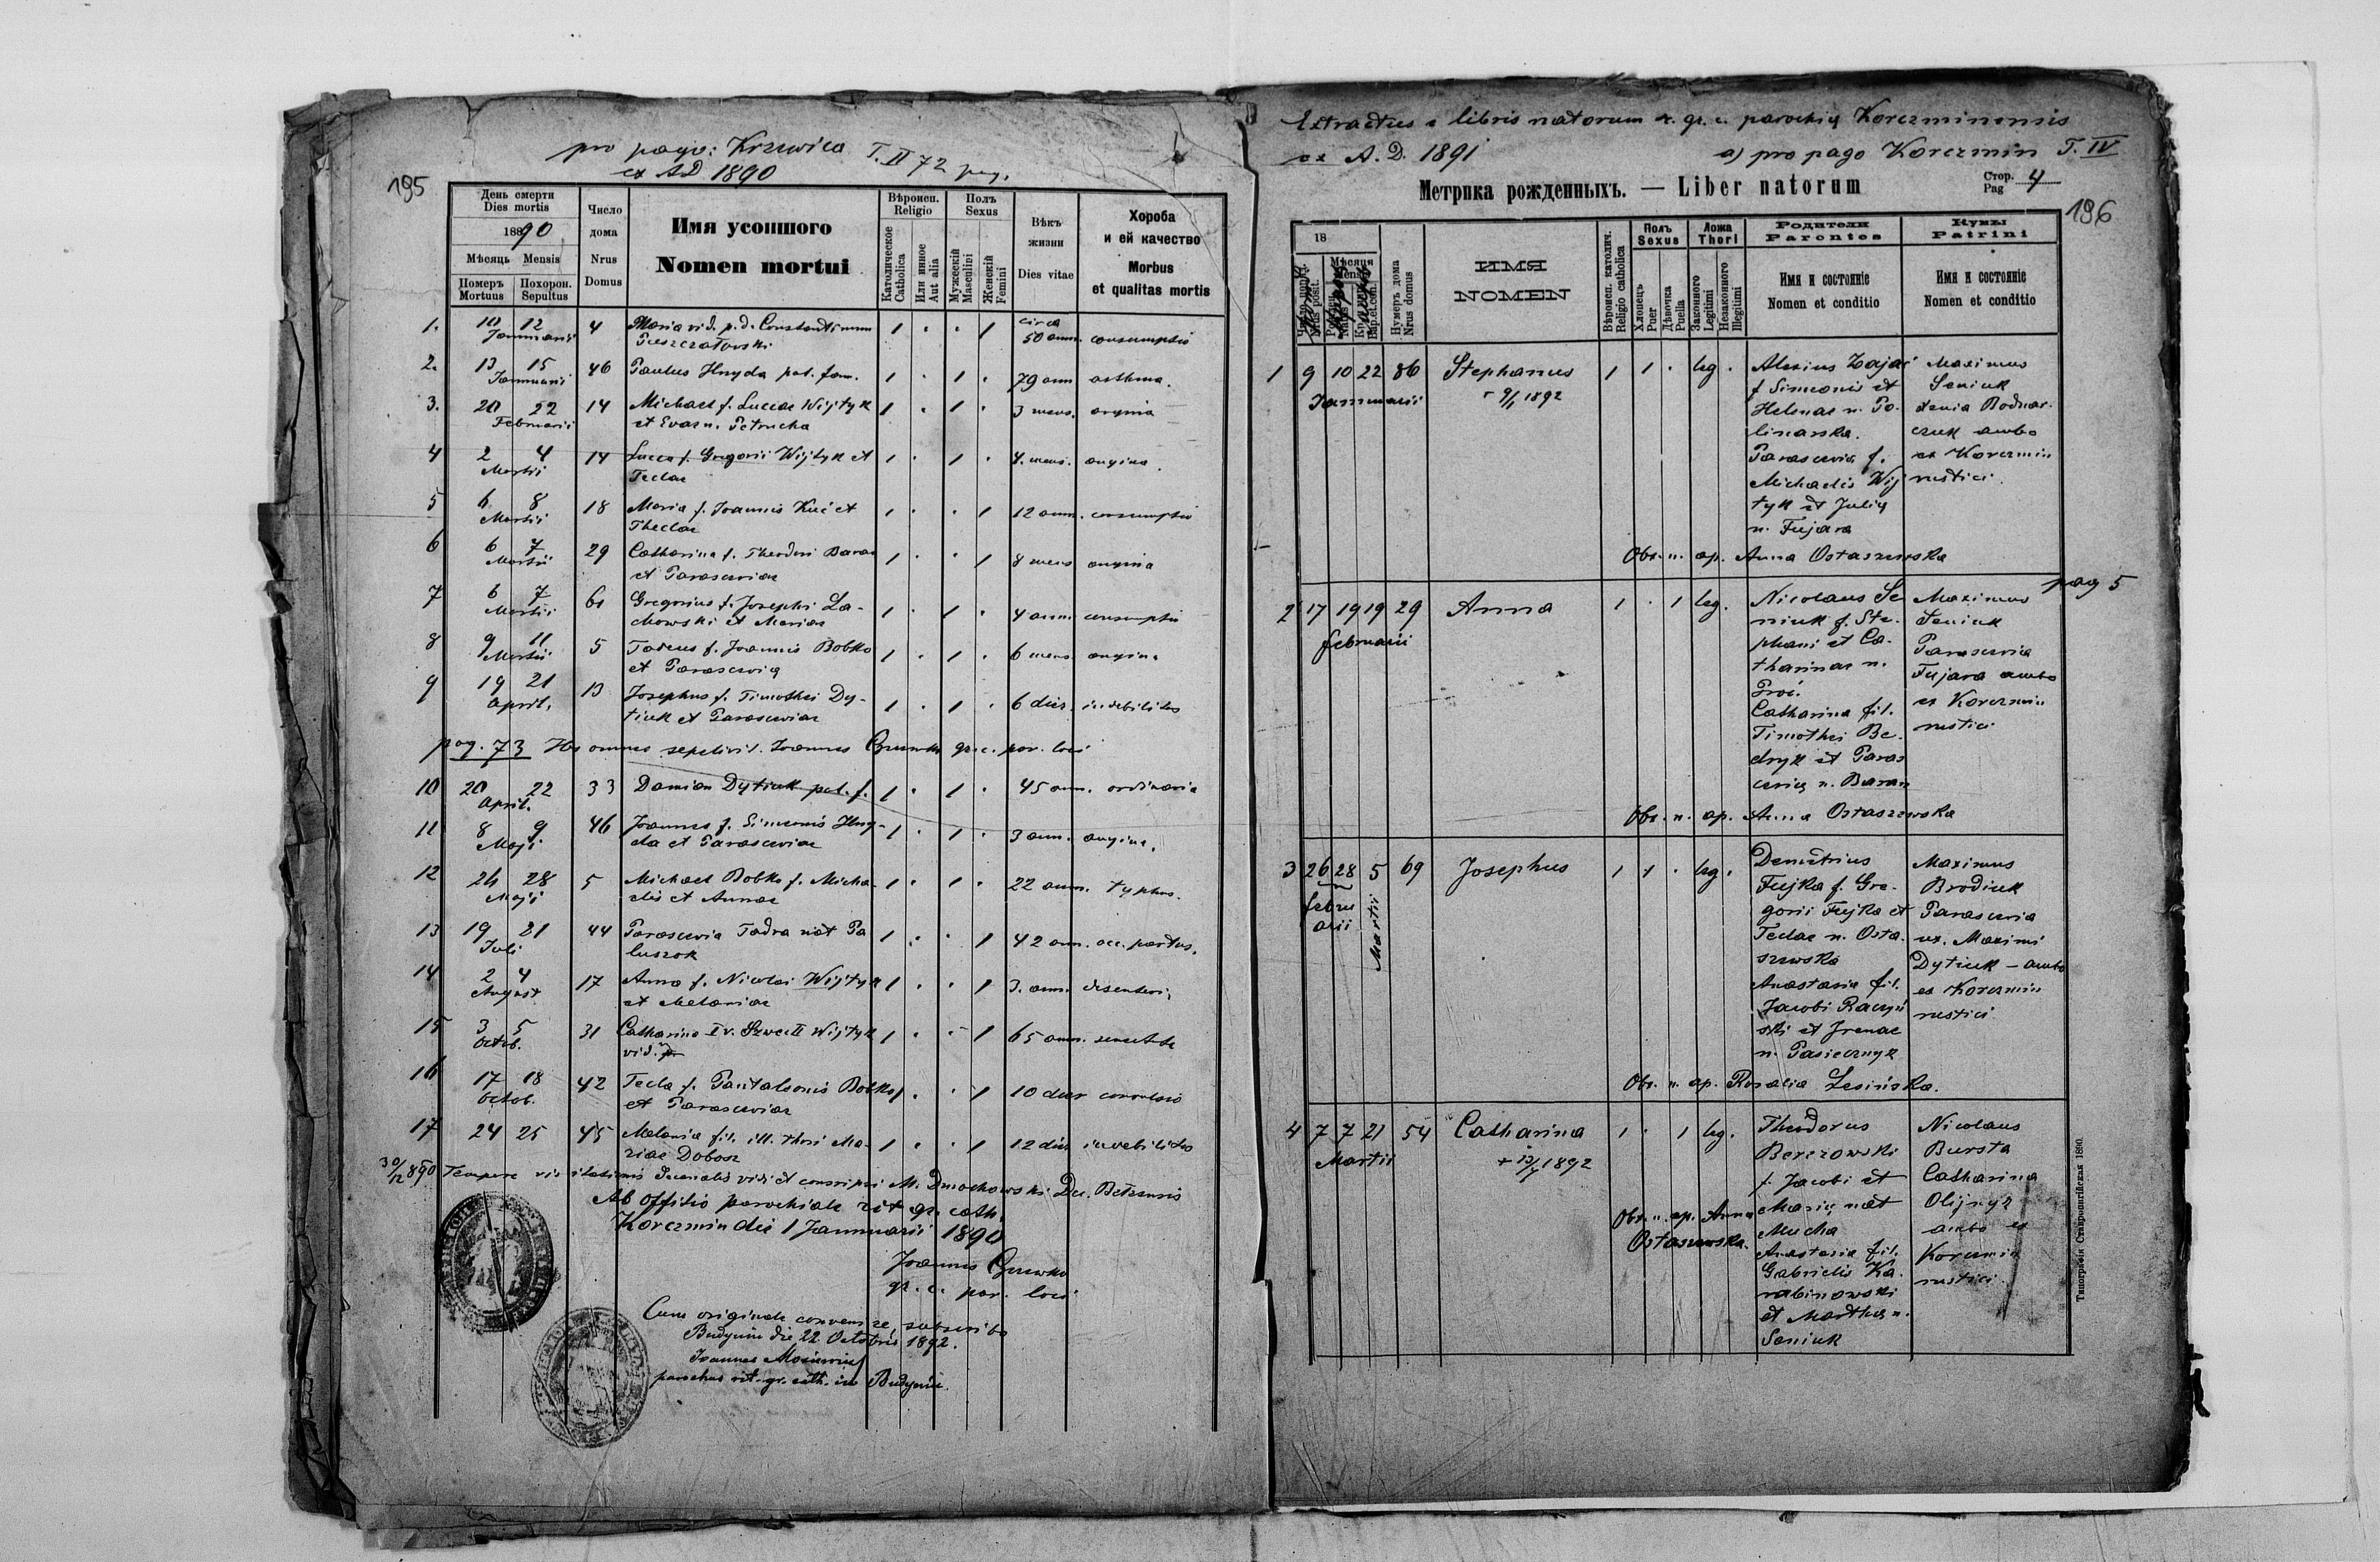 pro pago: Krzewica T. II 72 pag.
ex A.D. 1890
195
День смерти
Dies mortis
1890
Мѣсяць Mensis
Померъ Mortuus
Похорон. Sepultus
Число дома
Nrus Domus
Имя усопшого
Nomen mortui
Вѣроисп.
Religio
Католическое
Catholica
Или инное
Aut alia
Полъ
Sexus
Мужескій
Masculini
Женскій
Femini
Вѣкъ жизни
Dies vitae
Хороба
и ей качество
Morbus
et qualitas mortis
1. 10 12 4 Maria vid. p. d. Constantinum 1 . . 1 circa
Januarii 50 ann. consumptio
2. 13 15 46 Paulus Hnyda pat. fam. 1 . 1 . 79 ann asthma.
Januarii
3. 20 22 14 Michael f. Lucae Wijtyk 1 . 1 . 3 mens. angina
Februarii et Evae n. Petrucha
4 2 4 14 Lucas f. Gregorii Wijtyk et 1 . 1 . 4. mens. angina.
Martii Teclae
5 6 8 18 Maria f. Joannis Kuć et 1 . . 1 12 ann. consumptio
Martii Theclae
6 6 7 29 Catharina f. Theodori Baran 1 . . 1 8 mens angina
Martii et Parasceviae
7 6 7 61 Gregorius f. Josephi La- 1 . 1 . 4 ann. consumptio
Martii chowski et Mariae
8 9 11 5 f. Joannis Bobko 1 . 1 . 6 mens. angina
Martii et Parascevia
9 19 21 13 Josephus f. Timothei Dy- 1 . 1 . 6 dies. indebilitas
April. tiuk et Parasceviae
pag. 73 Hos omnes sepelivit Joannes gr. c. par. loci
10 20 22 33 Damian Dytiuk pat. f. 1 . 1 . 45 ann. ordinaria
April.
11 8 9 46 Joannes f. Simeonis Hny- 1 . 1 . 3 ann. angina.
Maji da et Parasceviae
12 26 28 5 Michael Bobko f. Micha- 1 . 1 . 22 ann. typhus.
Maji elis et Annae
13 19 21 44 Parascevia Fadra nat Pa 1 . . 1 42 ann. occ. partus.
Juli luszok
14 2 4 17 Anna f. Nicolai Wijtyk 1 . . 1 3. ann. disenteri,
August et Melaniae
15 3 5 31 Catharina I v. Szwec II Wijtyk 1 . . 1 65 ann.
Octob. vid.
16 17 18 42 Tecla f. Pantaleonis Bobko 1 . . 1 10 dies convulsio
Octob. et Parasceviae
17 24 25 45 Melania fil. ill. thori Ma- 1 . . 1 12 dies indebilitas
riae Dobosz
30/12 890 Tempore visitationis decanalis vidi et conscripsi M. Dmochowski Dec. Bełzensis
Ab offitio parochiale rit gr. cath.
Korczmin die 1 Januarii 1890
Joannes
gr. c. par. loci
Cum originale convenire subscribo
Budynin die 22 Octobris 1892.
Joannes
parochus rit. gr. cath. in Budynin.
Extractus e libris natorum r. gr. c. parochię Korczminensis
ex A. D. 1891 a) pro pago Korczmin T. IV
Метрика рожденныхъ. — Liber natorum
Стор. 4
Pag
196
18
Мѣсяця
Mensis
Нумеръ дома
Nrus domus
ИМЯ
NOMEN
Вѣроисп. католич.
Religio catholica
Полъ
Sexus
Хлопець
Puer
Дѣвочка
Puella
Ложа
Thori
Законного
Legitimi
Незаконного
Illegitimi
Родители
Parentes
Имя и состояніе
Nomen et conditio
Кумы
Patrini
Имя и состояніе
Nomen et conditio
1 9 10 22 86 Stephanus 1 1 . leg . Alexius Zając Maximus
Januarii 9/1 1892 f. Simeonis et Seniuk
Helenae n. Po- Xenia Bodnar-
linarska. czuk ambo
Parascevia f. ex Korczmin
Michaelis Wij rustici.
tyk et Julię
n. Fujara
Obs. n. ap. Anna Ostaszewska
pag 5
2 17 19 19 29 Anna 1 . 1 leg. Nicolaus Se Maximus
februarii niuk f. Ste- Seniuk
phani et Ca- Parascevia
tharinae n. Fujara ambo
Proć. ex Korczmin
Catharina fil. rustici
Timothei Be-
dryk et Paras
cevię n. Baran
Obs. n. ap. Anna Ostaszewska
3 26 28 5 69 Josephus 1 1 . leg . Demetrius Maximus
februarii Martii Fujka f. Gre- Brodiuk
gorii Fujka et Parascevia
Teclae n. Osta- ux. Maximi
szewska Dytiuk — ambo
Anastasia fil. ex Korczmin
Jacobi Raczyń rustici
ski et Irenae
n. Pasiecznyk
Obs. n. ap. Rosalia Lesińska.
4 7 7 21 54 Catharina 1 . 1 leg. Theodorus Nicolaus
Martii + 13/4 1892 Berezowski Bursta
f. Jacobi et Catharina
Obs. n. ap. Anna Marię nat Olijnyk
Ostaszewska. Mucha ambo ex
Anastasia fil. Korczmin
Gabrielis Ka- rustici.
rabinowski
et Marthae n.
Seniuk
Типографія Ставропигійская 1890.